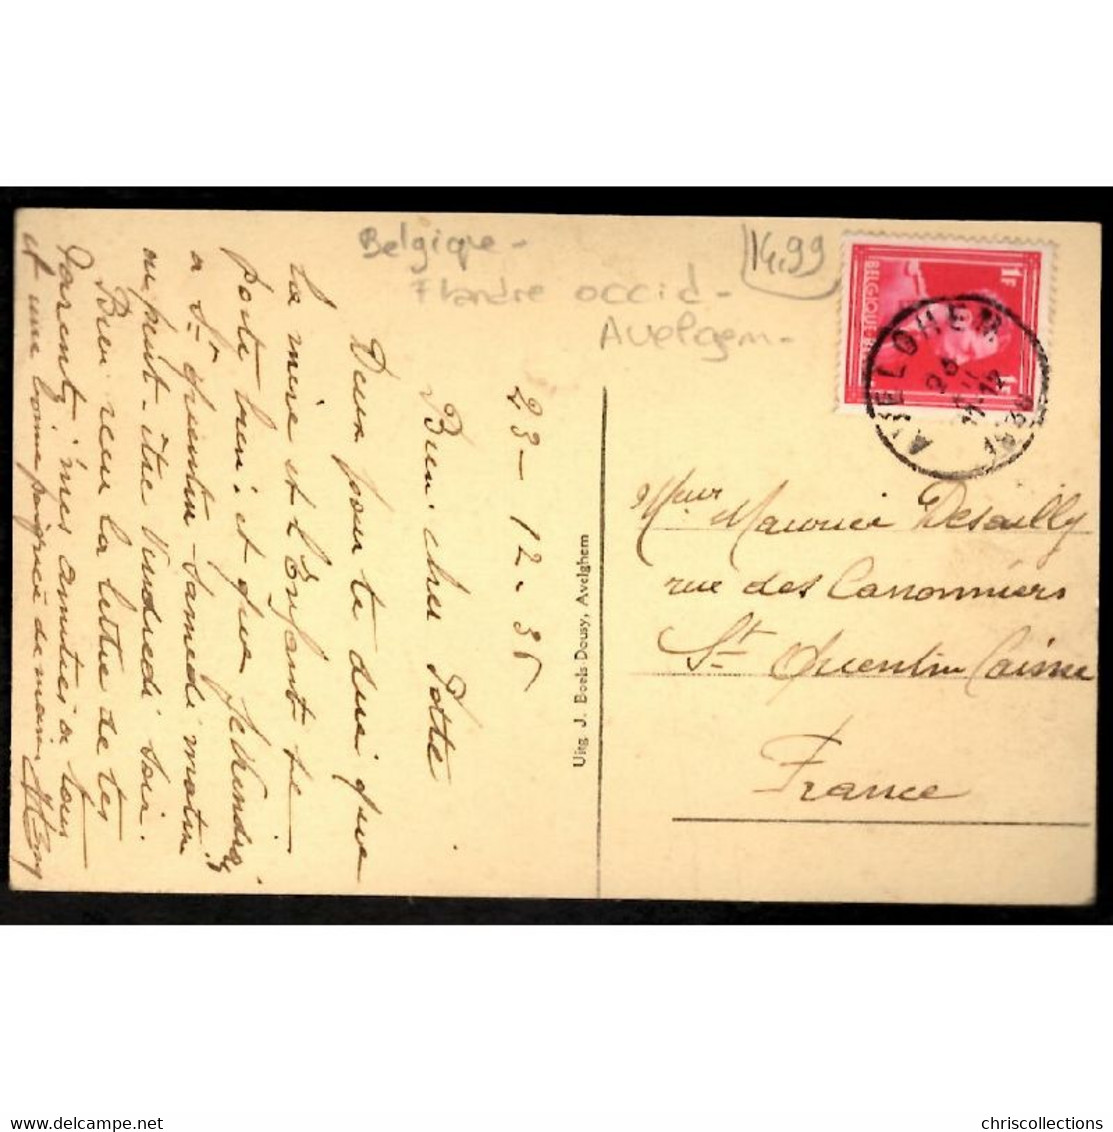 Belgique -
Flandre occid -
Avelgem -
14,99
1F
1F
BELGIQUE-BE
AVELGHEM
23-12-35
Bien cher
Deux pour te dire que
la mère et l'enfant se
porte bien. et que je viendrai
a St quentin Samedi matin
ou peut-être Vendredi soir.
Bien reçu la lettre de tes
Parents, mes amitiés a tous
et une bonne poignée de main
Uitg. J. Boels-Dousy, Avelghem
Mr Maurice Desailly
rue des Canonniers
St Quentin Aisne
France
delcampe.net
chriscollections